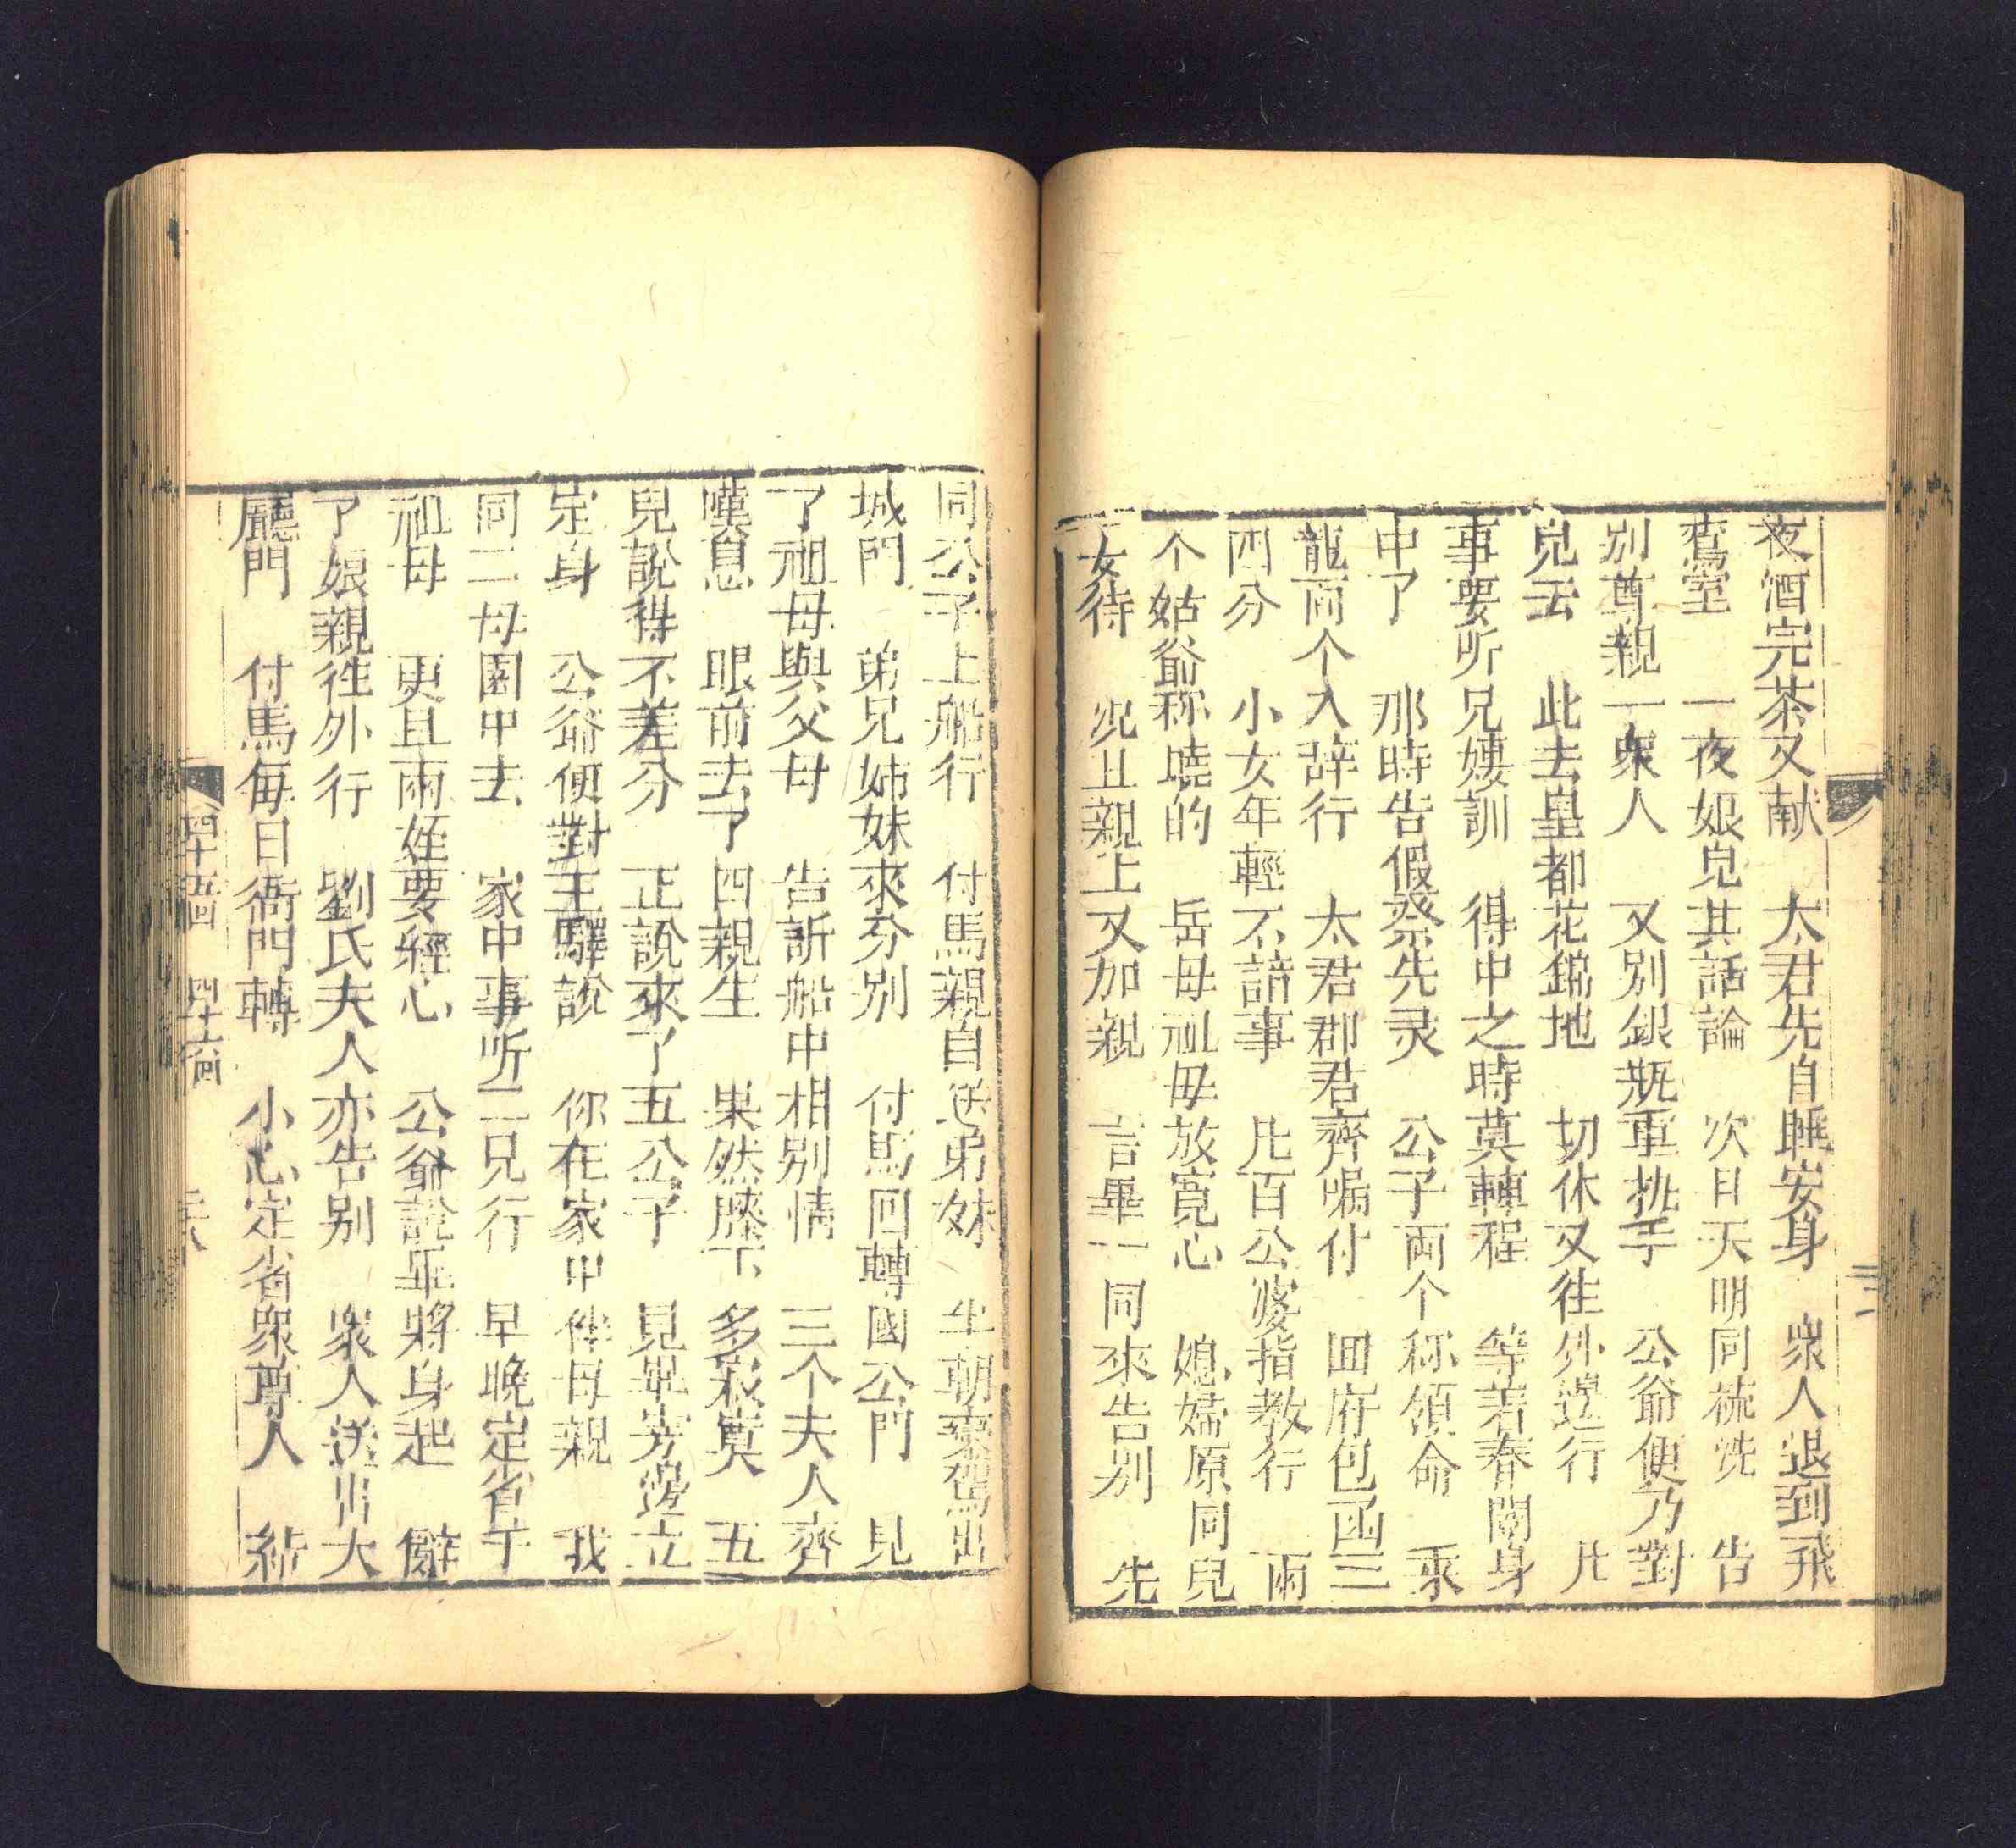 夜酒完茶又献　太君先自睡安身　衆人退到飛
鴛室　一夜娘兒其話論　次日天明同梳洗　告
别尊親一衆人　又別銀瓶重挑手　公爺便乃對
兒云　此去皇都花錦地　切休又往外邊行　凣
事要听兄嫂訓　得中之時莫轉程　等若春闈身
中了　那時告假祭先灵　公子両个称領命　乘
龍両个入辞行　太君郡君齊嘱付　囬府包函三
四分　小女年輕不諳事　凣百公婆指教行　両
个姑爺称曉的　岳母祖母放寛心　媳婦原同兒
女待　况且親上又加親　言畢一同來告别　先
同公子上船行　付馬親自送弟妹　坐朝乘駕出
城門　弟兄姊妹來分別　付馬回轉國公門　見
了祖母與父母　告訴船中相别情　三个夫人齊
嘆息　眼前去了四親生　果然膝下多寂寞　五
兒說得不差分　正說來了五公子　見畢旁邊立
定身　公爺便對王驛說　你在家中伴母親　我
同二母園中去　家中事听二兄行　早晚定省于
祖母　更且両姪要經心　公爺說罷將身起　辭
了娘親往外行　劉氏夫人亦告别　衆人送出大
廳門　付馬每日衙門轉　小心定省衆尊人
四十五回　四十六回